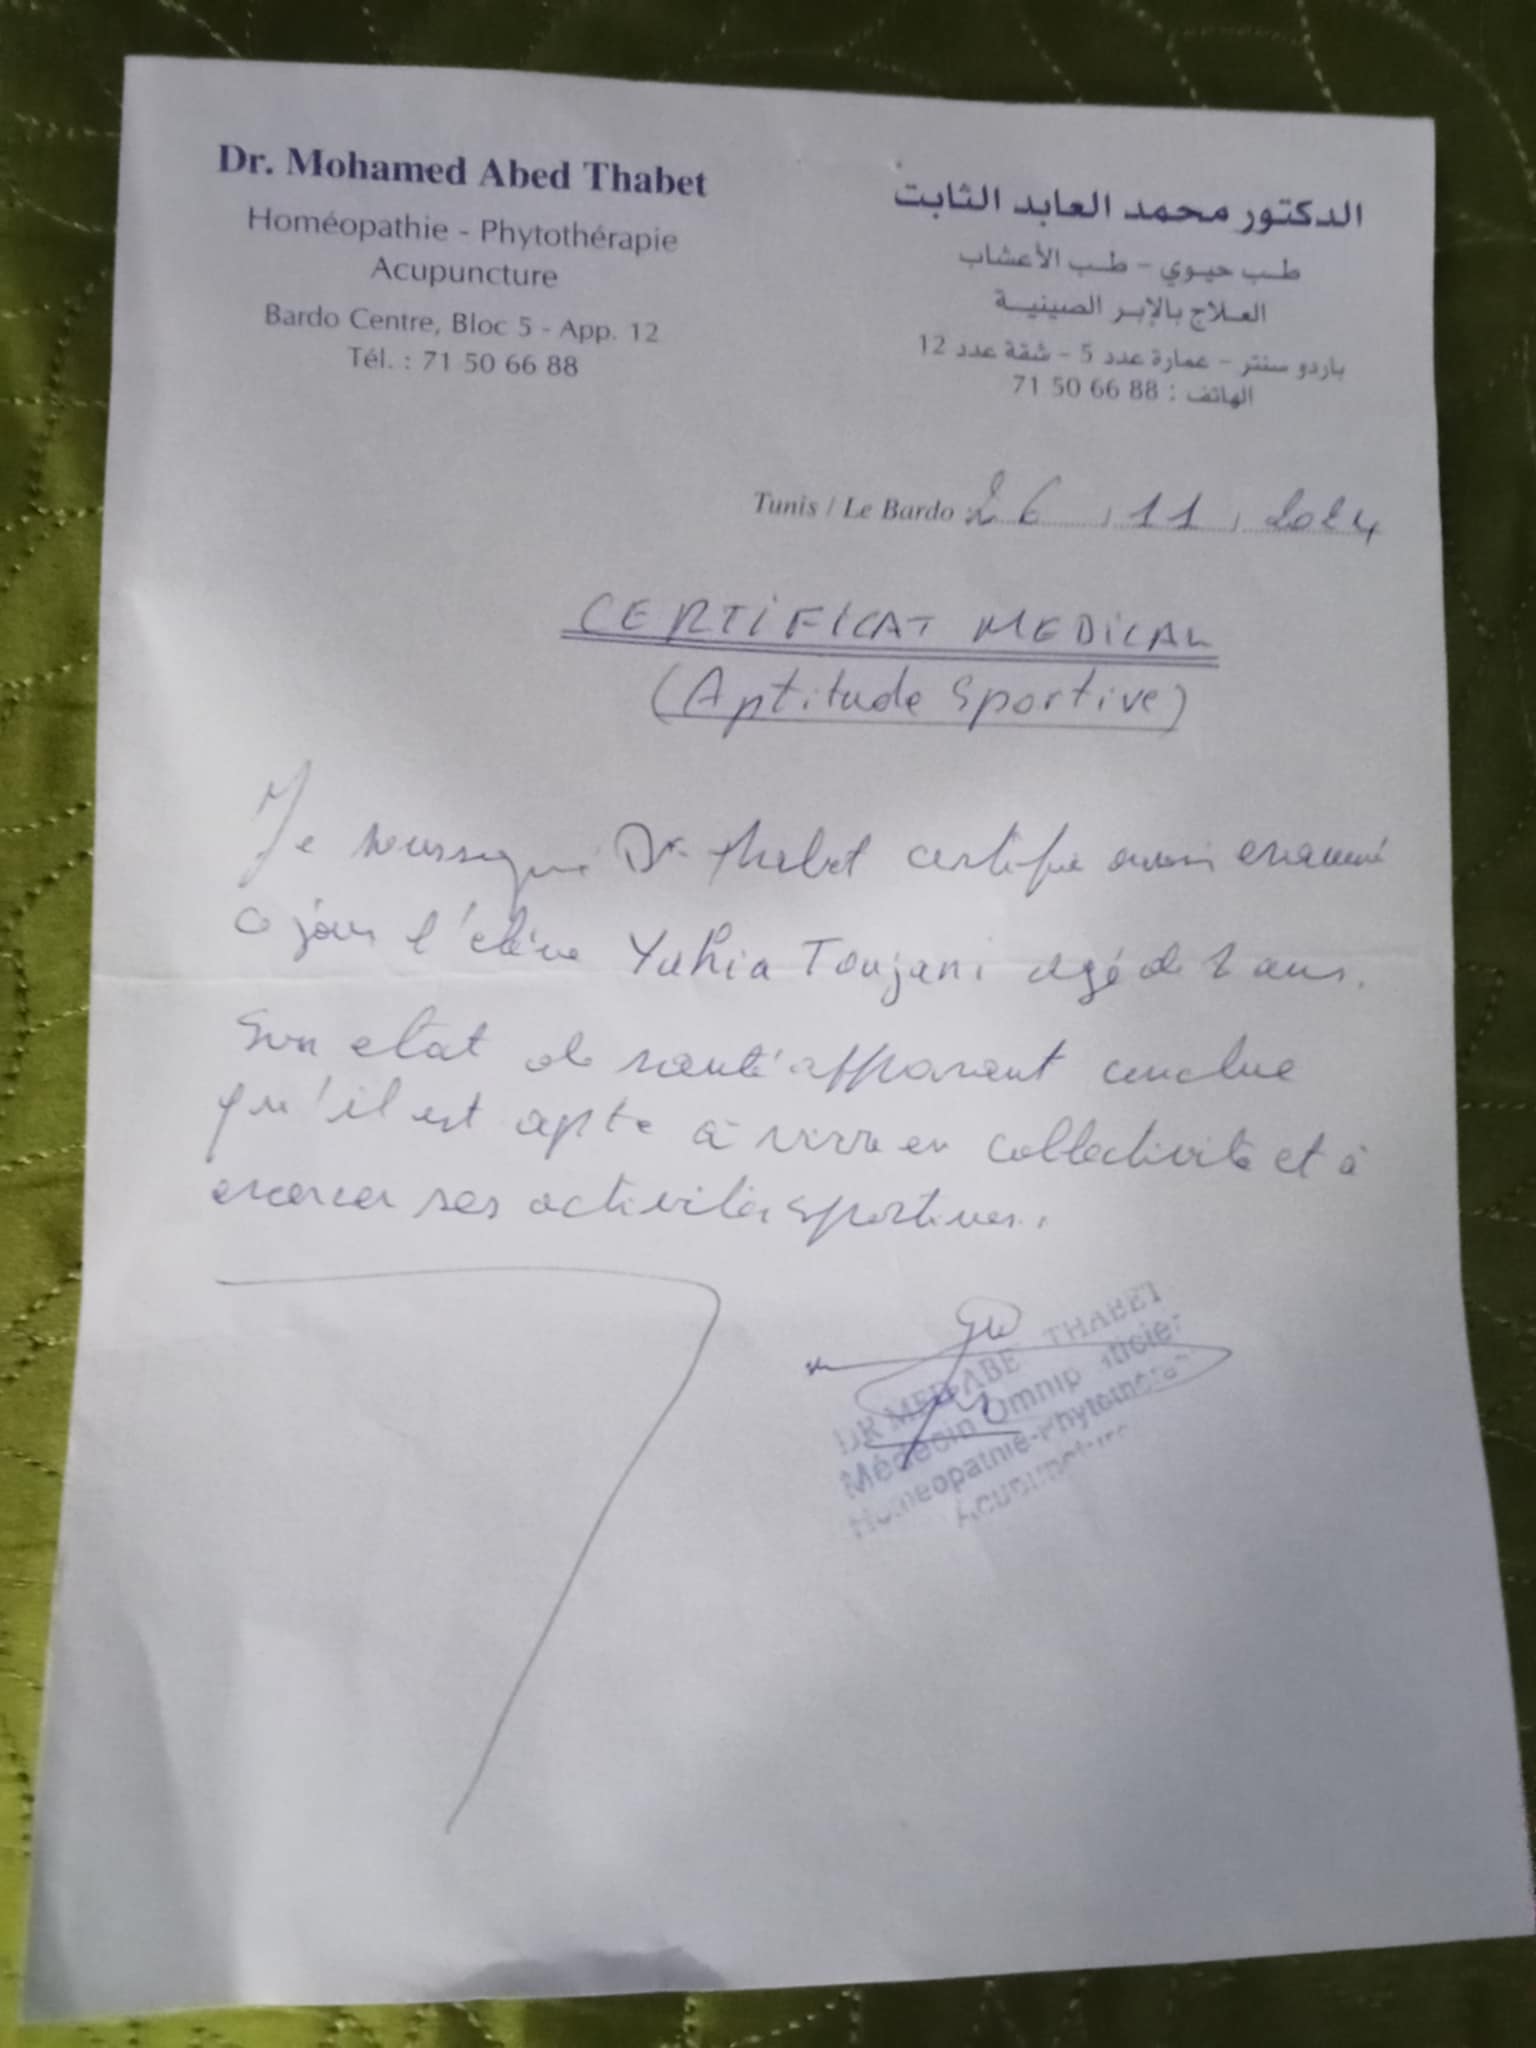 Dr. Mohamed Abed Thabet
Homéopathie - Phytothérapie
Acupuncture
Bardo Centre, Bloc 5 - App. 12
Tél. : 71 50 66 88
الدكتور محمد العابد الثابت
طب حيوي - طب الأعشاب
العلاج بالإبر الصينية
باردو سنتر - عمارة عدد 5 - شقة عدد 12
الهاتف : 71 50 66 88
Tunis / Le Bardo 26 / 11 / 2024
CERTIFICAT MEDICAL
(Aptitude Sportive)
Je soussigné Dr Thabet certifie avoir examiné
ce jour l'élève Yahia Toujani agé de ans.
Son etat de santé apparent conclue
qu'il est apte à vivre en collectivité et à
exercer ses activités sportives.
DR MED ABE THABET
Médecin Omnip aticier
Homéopathie-Phytothérap
Acupuncture